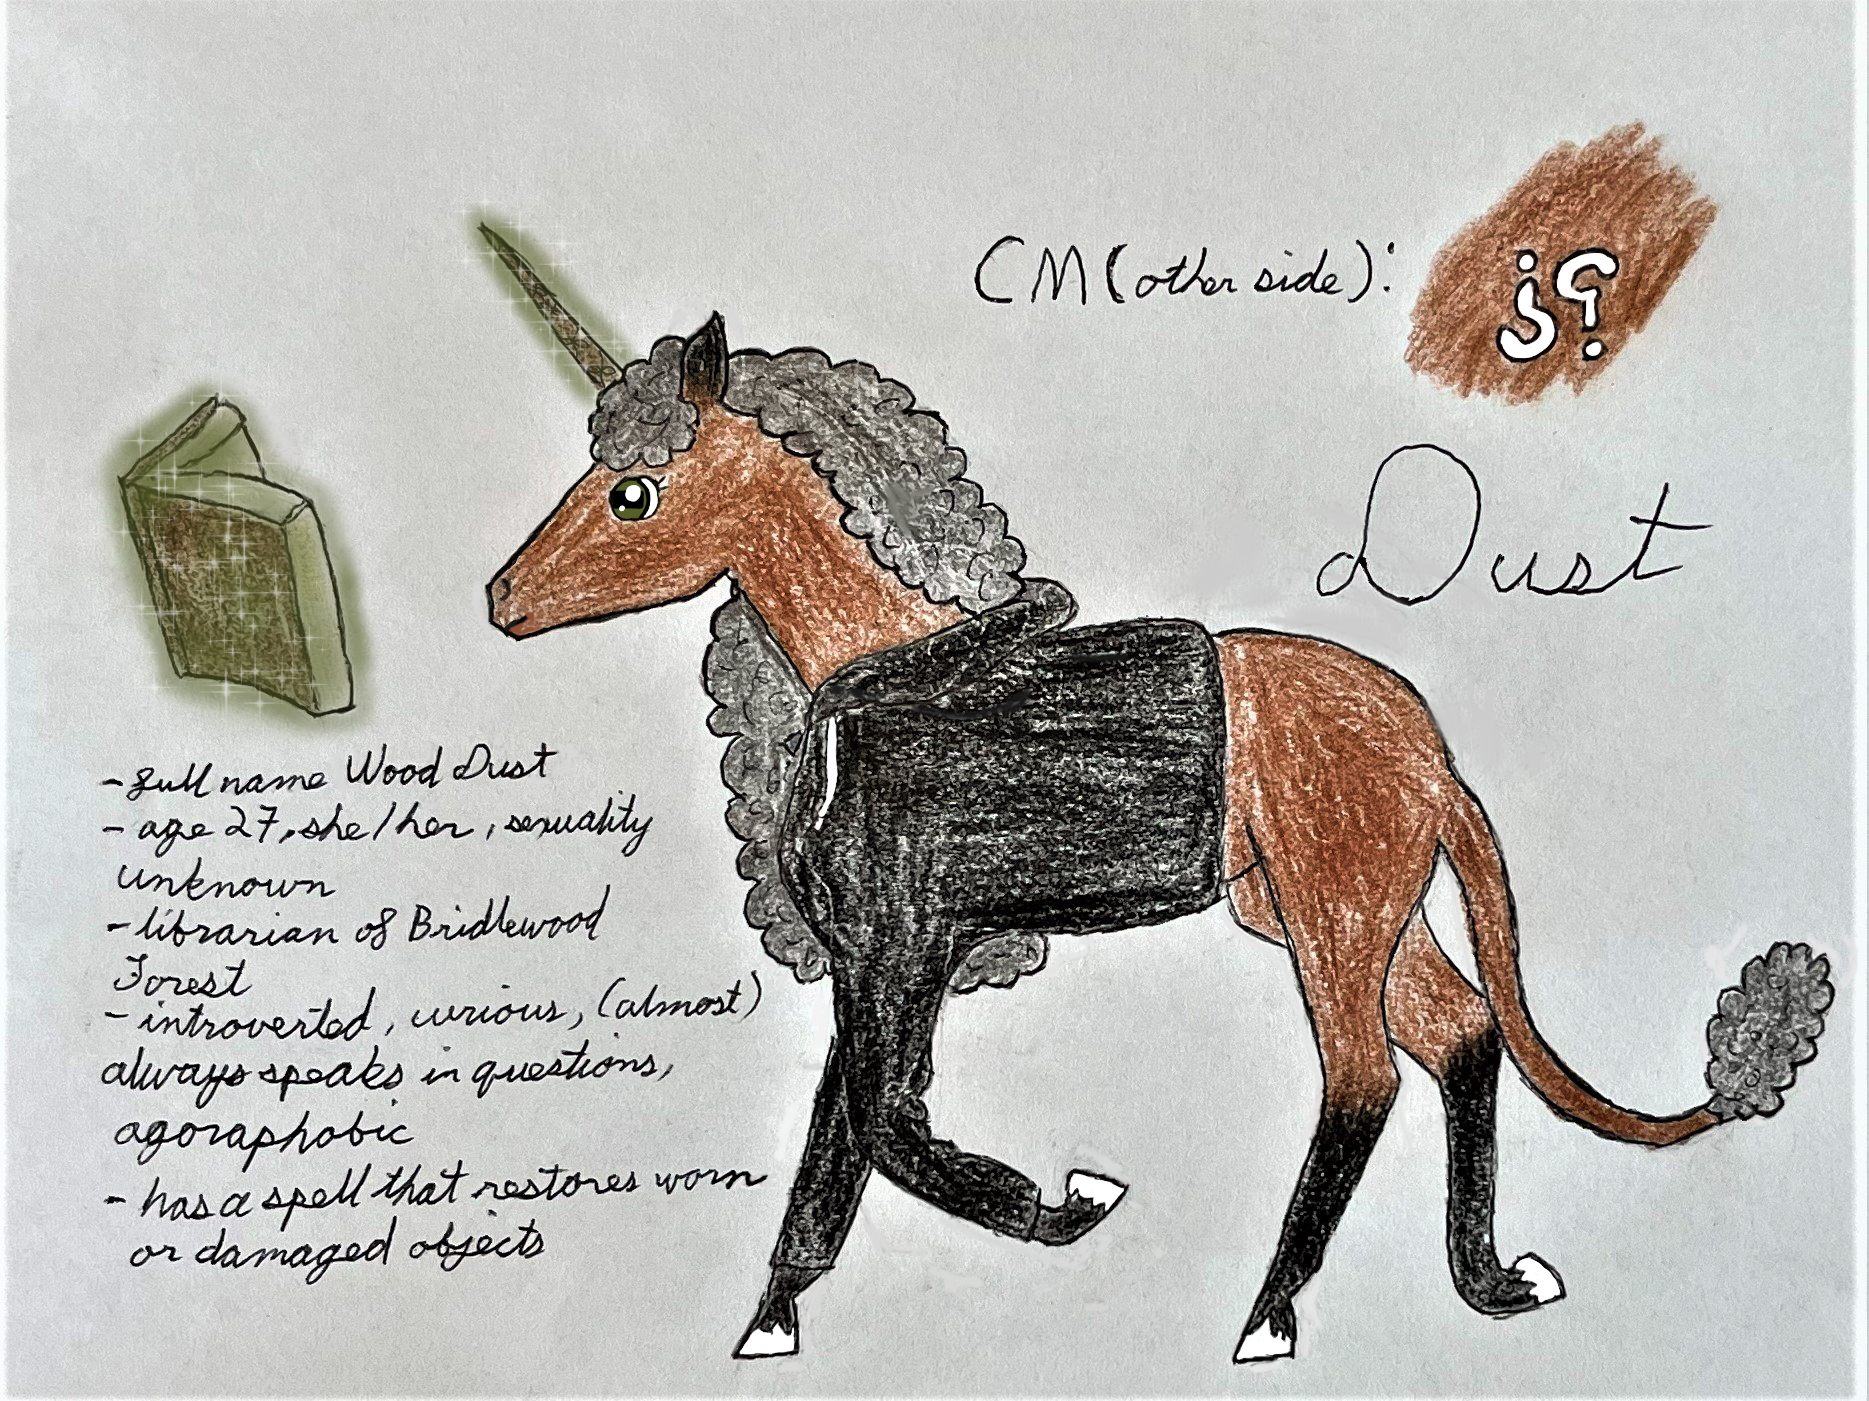 CM (other side):
¿⸮
Dust
- full name Wood Dust
- age 27, she/her, sexuality
unknown
- librarian of Bridlewood
Forest
- introverted, curious, (almost)
always speaks in questions,
agoraphobic
- has a spell that restores worn
or damaged objects